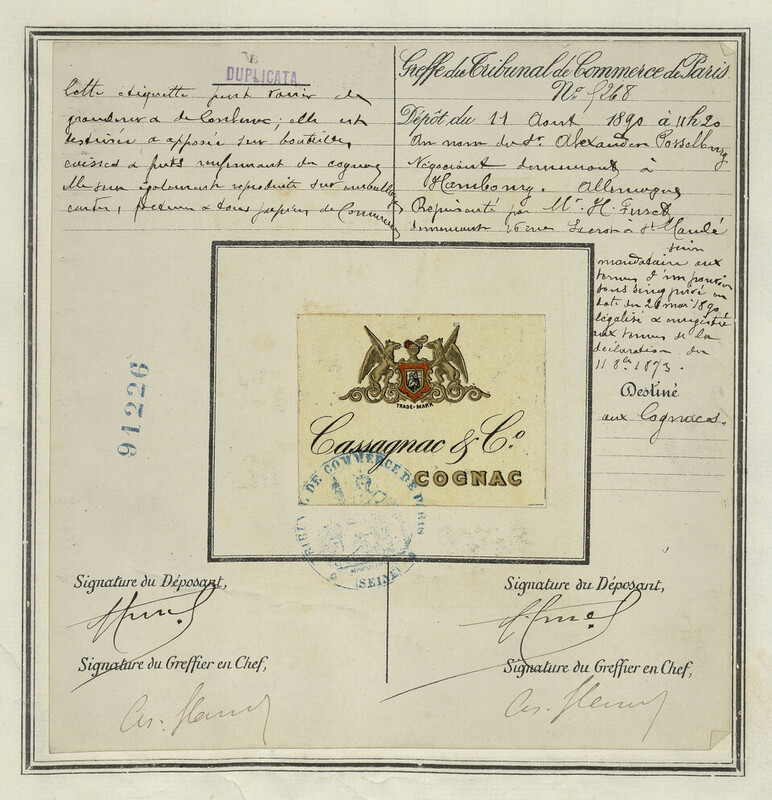 DUPLICATA
Cette étiquette peut varier de
grandeur & de couleur; elle est
destinée à apposée sur bouteilles,
caisses & futs renfermant du cognac
elle sera également reproduite sur
cartes, factures & tous papiers de Commerce
Greffe du Tribunal de Commerce de Paris.
No
Dépôt du 11 Aout 1890 à 11h20
Au nom du Sr. Alexander Posselburg
Négociant demeurant à
Hambourg. Allemagne
Représenté par Mr. H. Fuset
demeurant 26 rue à St Mandé
son
mandataire aux
termes d'un pouvoir
sous seing privé en
date du 21 mai 1890
légalisé & enregistré
aux termes de la
déclaration du
11 8bre 1873.
Destiné
aux Cognacs.
91226
TRADE-MARK
Cassagnac & Co.
COGNAC
TRIBUNAL DE COMMERCE DE PARIS
(SEINE)
Signature du Déposant,
Signature du Déposant,
Signature du Greffier en Chef,
Signature du Greffier en Chef,